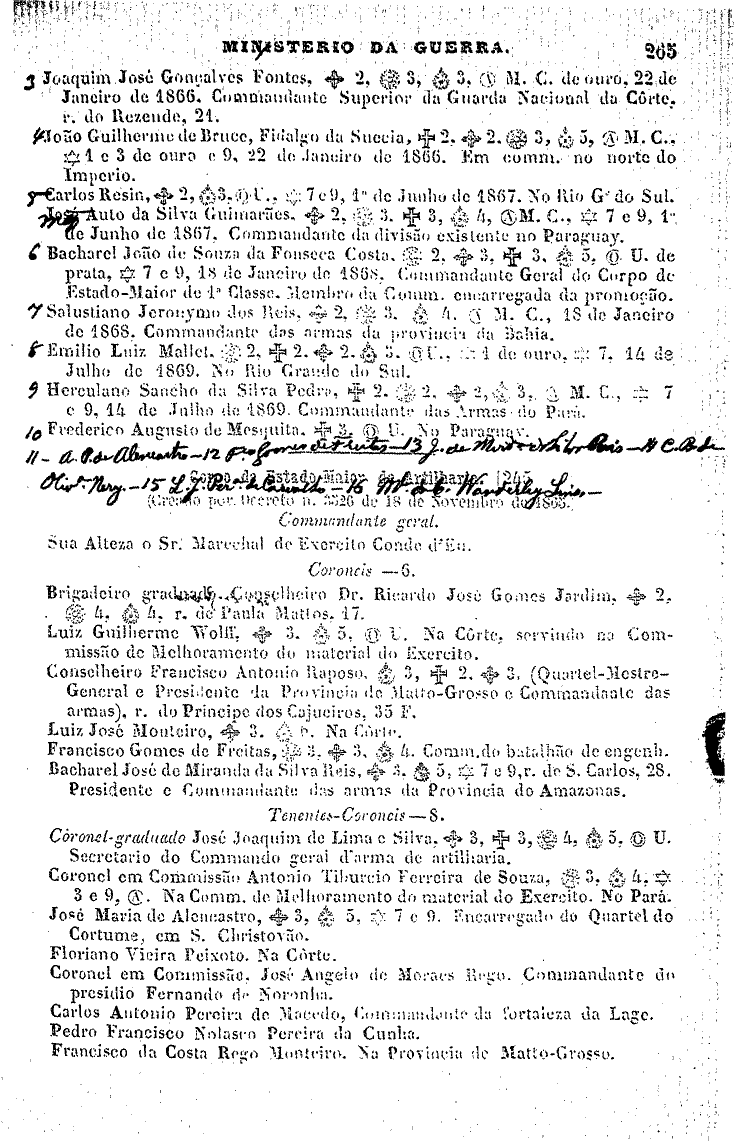 MINISTERIO DA GUERRA. 265
3 Joaquim José Gonçalves Fontes, 2, 3, 3, M. C. de ouro, 22 de
Janeiro de 1866. Commandante Superior da Guarda Nacional da Côrte,
r. do Rezende, 21.
4 João Guilherme de Bruce, Fidalgo da Suecia, 2, 2, 3, 5, M. C.,
1 e 3 de ouro e 9, 22 de Janeiro de 1866. Em comm. no norte do
Imperio.
Carlos Resin, 2, 3, U., 7 e 9, 1º de Junho de 1867. No Rio Gº do Sul.
José Auto da Silva Guimarães, 2, 3, 3, 4, M. C., 7 e 9, 1º
de Junho de 1867. Commandante da divisão existente no Paraguay.
6 Bacharel João de Souza da Fonseca Costa, 2, 3, 3, 5, U. de
prata, 7 e 9, 18 de Janeiro de 1868. Commandante Geral do Corpo de
Estado-Maior de 1ª Classe. Membro da Comm. encarregada da promoção.
7 Salustiano Jeronymo dos Reis, 2, 3, 4, M. C., 18 de Janeiro
de 1868. Commandante das armas da provincia da Bahia.
8 Emilio Luiz Mallet, 2, 2, 2, 3, U., 1 de ouro, 7, 14 de
Julho de 1869. No Rio Grande do Sul.
9 Herculano Sancho da Silva Pedra, 2, 2, 2, 3, M. C., 7
e 9, 14 de Julho de 1869. Commandante das Armas do Pará.
10 Frederico Augusto de Mesquita. 3, U. No Paraguay.
11 - A. P. de Alencastro - 12 Gomes de Freitas - 13 J. de Reis - 14 C. B. de
Olivª Nery. - 15 L. J. Perª de Carvalho - 16 Wanderley Lins -
Corpo de Estado-Maior de Artilharia.
(Creado por Decreto n. 3526 de 18 de Novembro de 1865.)
Commandante geral.
Sua Alteza o Sr. Marechal de Exercito Conde d'Eu.
Coroneis — 6.
Brigadeiro graduado, Conselheiro Dr. Ricardo José Gomes Jardim, 2,
4, 4, r. de Paula Mattos, 17.
Luiz Guilherme Wolff, 3, 5, U. Na Côrte, servindo na Com-
missão de Melhoramento do material do Exercito.
Conselheiro Francisco Antonio Raposo, 3, 2, 3, (Quartel-Mestre-
General e Presidente da Provincia de Matto-Grosso e Commandante das
armas), r. do Principe dos Cajueiros, 35 F.
Luiz José Monteiro, 3, 6. Na Côrte.
Francisco Gomes de Freitas, 3, 3, 4. Comm. do batalhão de engenh.
Bacharel José de Miranda da Silva Reis, 3, 5, 7 e 9, r. de S. Carlos, 28.
Presidente e Commandante das armas da Provincia do Amazonas.
Tenentes-Coroneis — 8.
Córonel-graduado José Joaquim de Lima e Silva, 3, 3, 4, 5, U.
Secretario do Commando geral d'arma de artilharia.
Coronel em Commissão Antonio Tiburcio Ferreira de Souza, 3, 4,
3 e 9, A. Na Comm. de Melhoramento do material do Exercito. No Pará.
José Maria de Alencastro, 3, 5, 7 e 9. Encarregado do Quartel do
Cortume, em S. Christovão.
Floriano Vieira Peixoto. Na Côrte.
Coronel em Commissão, José Angelo de Moraes Rego. Commandante do
presidio Fernando de Noronha.
Carlos Antonio Pereira de Macedo, Commandante da fortaleza da Lage.
Pedro Francisco Nolasco Pereira da Cunha.
Francisco da Costa Rego Monteiro. Na Provincia de Matto-Grosso.